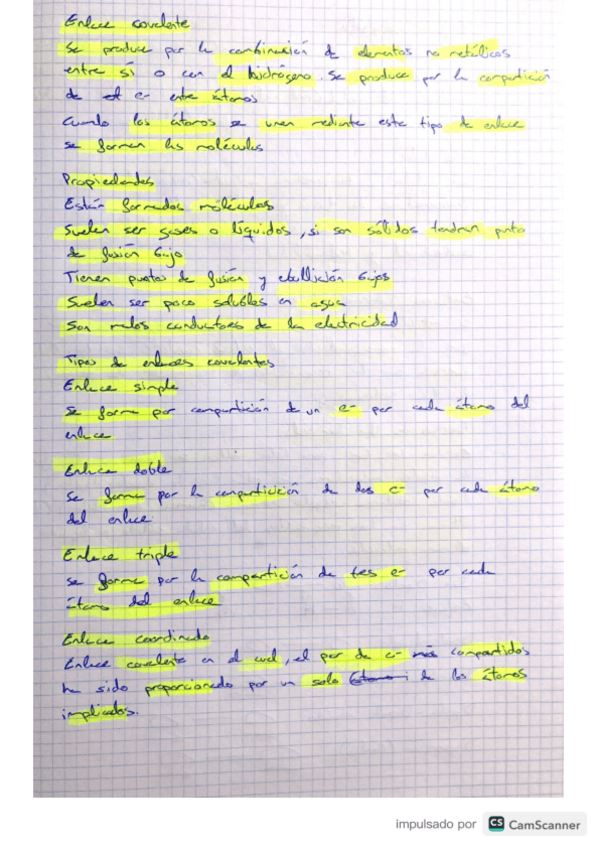 Enlace covalente
Se produce por la combinación de elementos no metálicos
entre sí o con el hidrógeno. Se produce por la compartición
de e- entre átomos
Cuando los átomos se unen mediante este tipo de enlace
se forman las moléculas
Propiedades
Están formados moléculas
Suelen ser gases o líquidos, si son sólidos tendrán punto
de fusión bajo
Tienen puntos de fusión y ebullición bajos
Suelen ser poco solubles en agua
Son malos conductores de la electricidad
Tipos de enlaces covalentes
Enlace simple
Se forma por compartición de un e- por cada átomo del
enlace
Enlace doble
Se forma por la compartición de dos e- por cada átomo
del enlace
Enlace triple
Se forma por la compartición de tes e- por cada
átomo del enlace
Enlace coordinado
Enlace covalente en el cual, el par de e- compartidos
ha sido proporcionado por un solo de los átomos
implicados.
impulsado por CS CamScanner